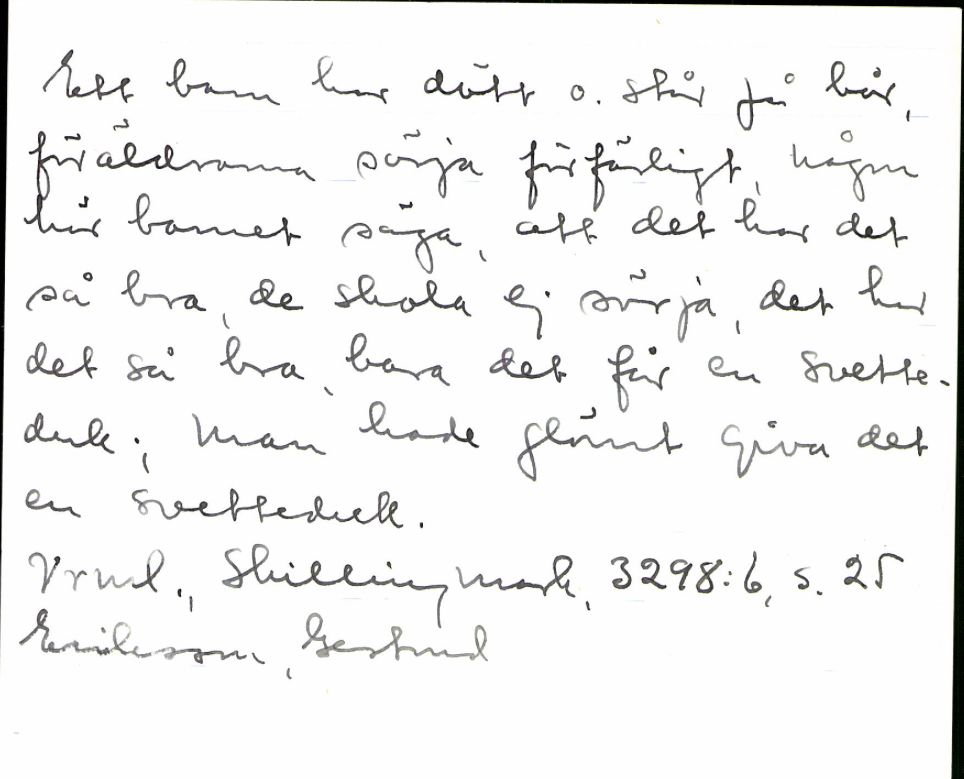 Ett barn har dött o. står på bår,
föräldrarna sörja förfärligt, någon
hör barnet säga, att det har det
så bra, de skola ej sörja, det har
det så bra, bara det får en svette-
duk; man hade glömt giva det
en svetteduk.
Vrml., Skillingmark, 3298:6, s. 25
Eriksson, Gertrud